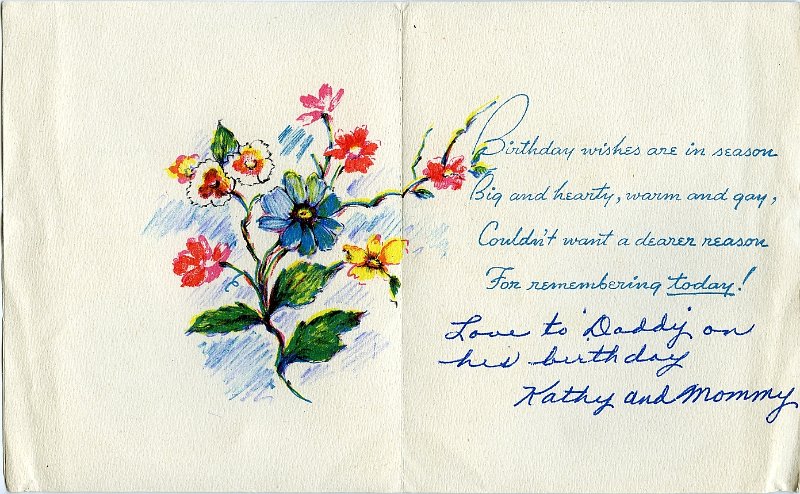 Birthday wishes are in season
Big and hearty, warm and gay,
Couldn't want a dearer reason
For remembering today!
Love to "Daddy" on
his birthday
Kathy and Mommy